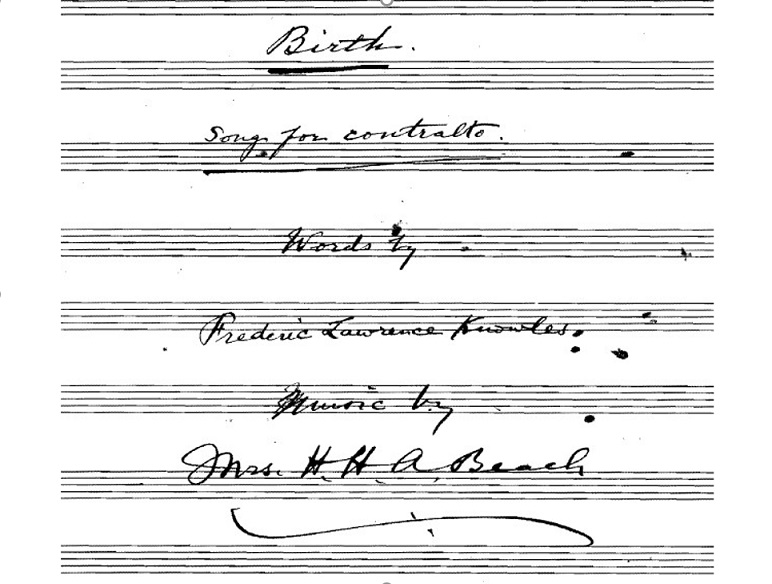 Birth.
Song for contralto.
Words by
Frederic Lawrence Knowles.
Music by
Mrs. H. H. A. Beach